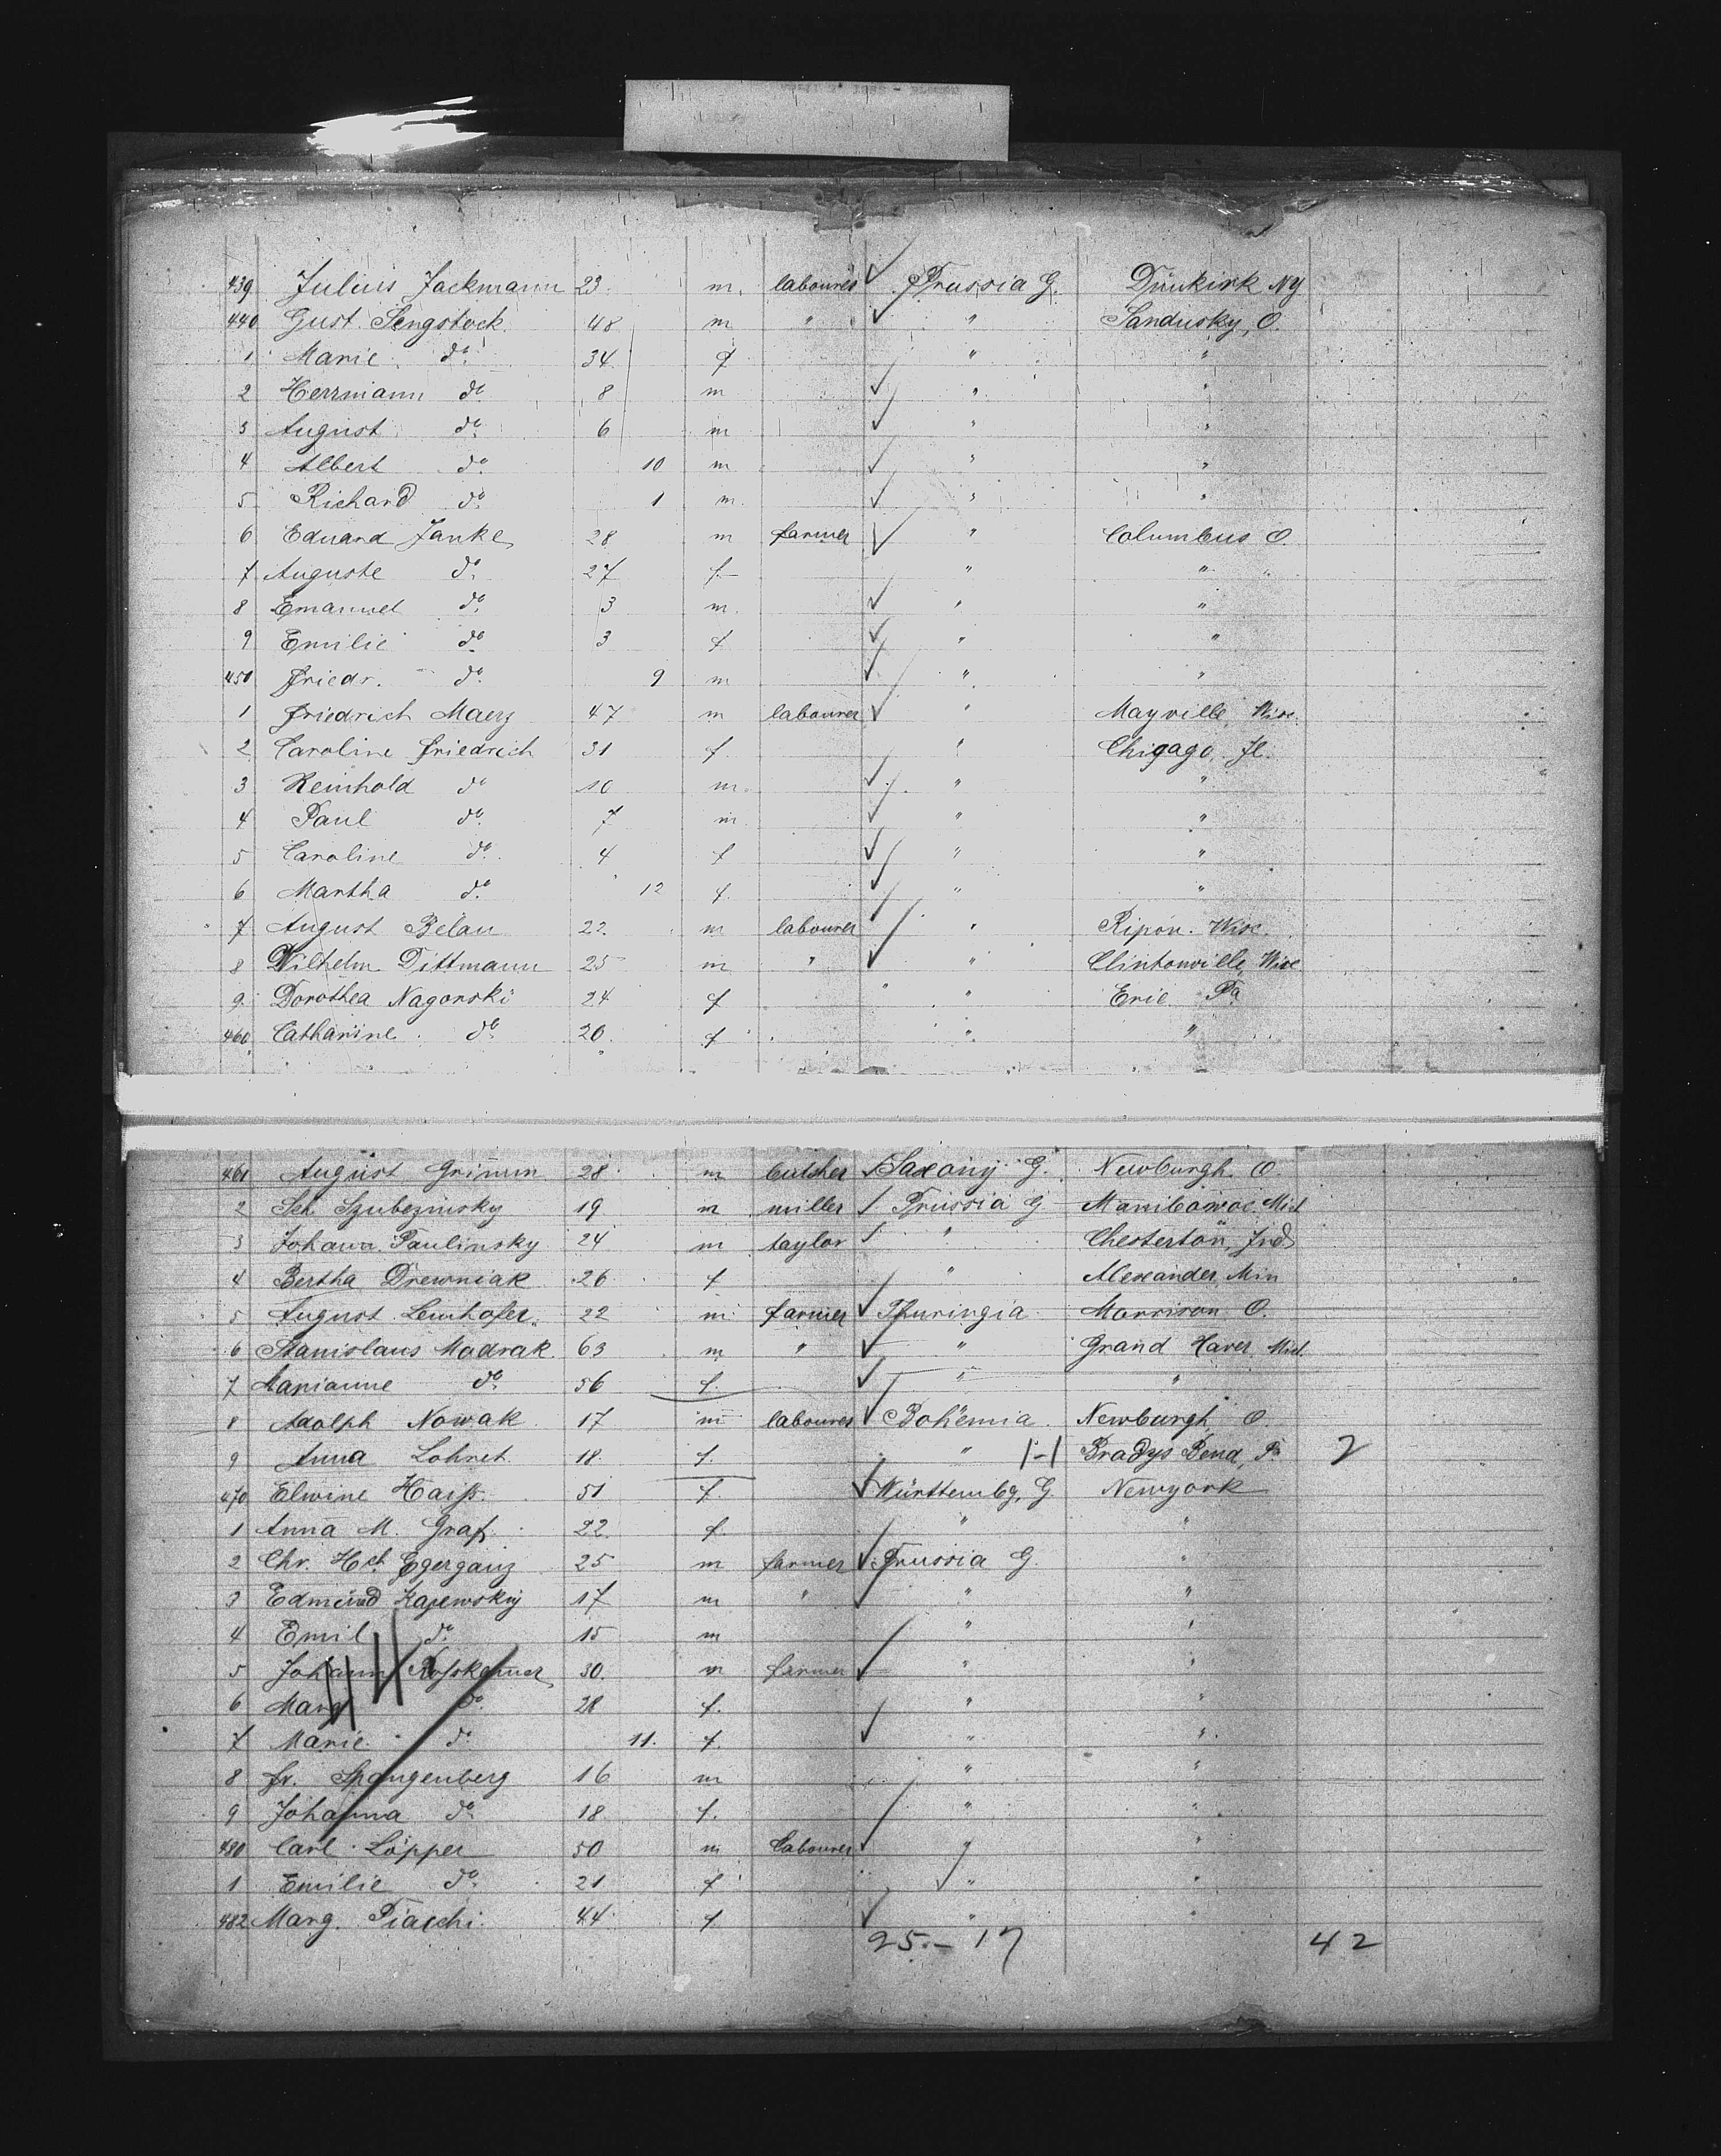 439 Julius Jackmann 23 m. labourer Prussia G. Dunkirk NY
440 Gust. Sengstock 48 m " " Sandusky, O.
1 Marie do 34 f " "
2 Herrmann do 8 m " "
3 August do 6 m " "
4 Albert do 10 m " "
5 Richard do 1 m " "
6 Eduard Janke 28 m farmer " Columbus O.
7 Auguste do 27 f " " "
8 Emanuel do 3 m. " "
9 Emilie do 3 f " "
450 Friedr. do 9 m " "
1 Friedrich Maerz 47 m labourer " Mayville, Wisc.
2 Caroline Friedrich 31 f " Chigago Jl.
3 Reinhold do 10 m. " "
4 Paul do 7 m " "
5 Caroline do 4 f " "
6 Martha do 12 f. " "
7 August Belau 22 m labourer " Ripon. Wisc.
8 Wilhelm Dittmann 25 m " " Clintonville, Wisc
9 Dorothea Nagorski 24 f " Erie Pa
460 Catharine do 20 f " "
461 August Grimm 28 m butcher Saxony G. Newburgh O.
2 Szubezinsky 19 m miller Prussia G
3 Paulinsky 24 m taylor " Chesterton, Ind
4 Bertha Drewniak 26 f " Alexander Min
5 August 22 m farmer Thuringia Marrison O.
6 Stanislaus Madrak 63 m " " Grand Haver Mich.
7 Marianne do 56 f. " "
8 Adolph Nowak 17 m labourer Bohemia Newburgh O.
9 Anna Lohret 18 f. " 1-1 Bradys Bend, Pa 2
470 Elwine Haiß 51 f. Württembg, G. Newyork
1 Anna M. Graf 22 f. " "
2 Chr. Hch. Egerganz 25 m farmer Prussia G. "
3 Edmund Kajewsky 17 m " " "
4 Emil do 15 m " "
5 Johann 30. m farmer " "
6 Marg do 28 f. " "
7 Marie do 11. f. " "
8 Fr. Spangenberg 16 m " "
9 Johanna do 18 f. " "
480 Carl Löpper 50 m labourer " "
1 Emilie do 21 f " "
482 Marg. 44 f " "
25.- 17 42